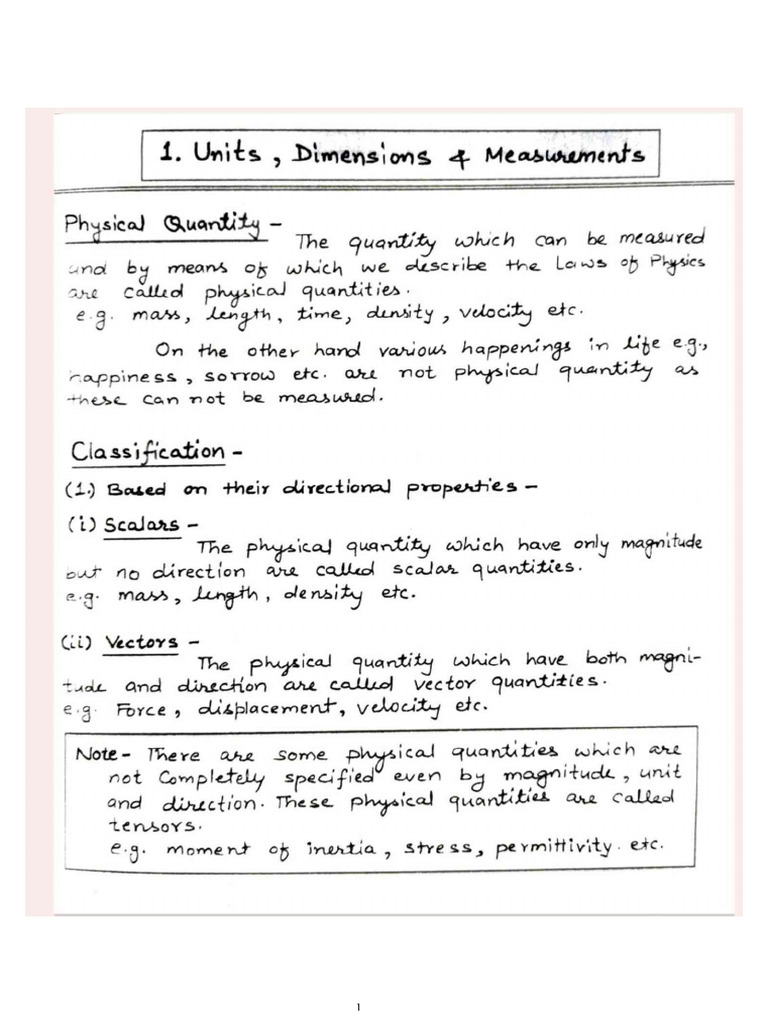 1. Units, Dimensions & Measurements
Physical Quantity -
The quantity which can be measured
and by means of which we describe the Laws of Physics
are called physical quantities.
e.g. mass, length, time, density, velocity etc.
On the other hand various happenings in life e.g.,
happiness, sorrow etc. are not physical quantity as
these can not be measured.
Classification -
(1.) Based on their directional properties -
(i) Scalars -
The physical quantity which have only magnitude
but no direction are called scalar quantities.
e.g. mass, length, density etc.
(ii) Vectors -
The physical quantity which have both magni-
tude and direction are called vector quantities.
e.g. Force, displacement, velocity etc.
Note - There are some physical quantities which are
not Completely specified even by magnitude, unit
and direction. These physical quantities are called
tensors.
e.g. moment of inertia, stress, permittivity. etc.
1